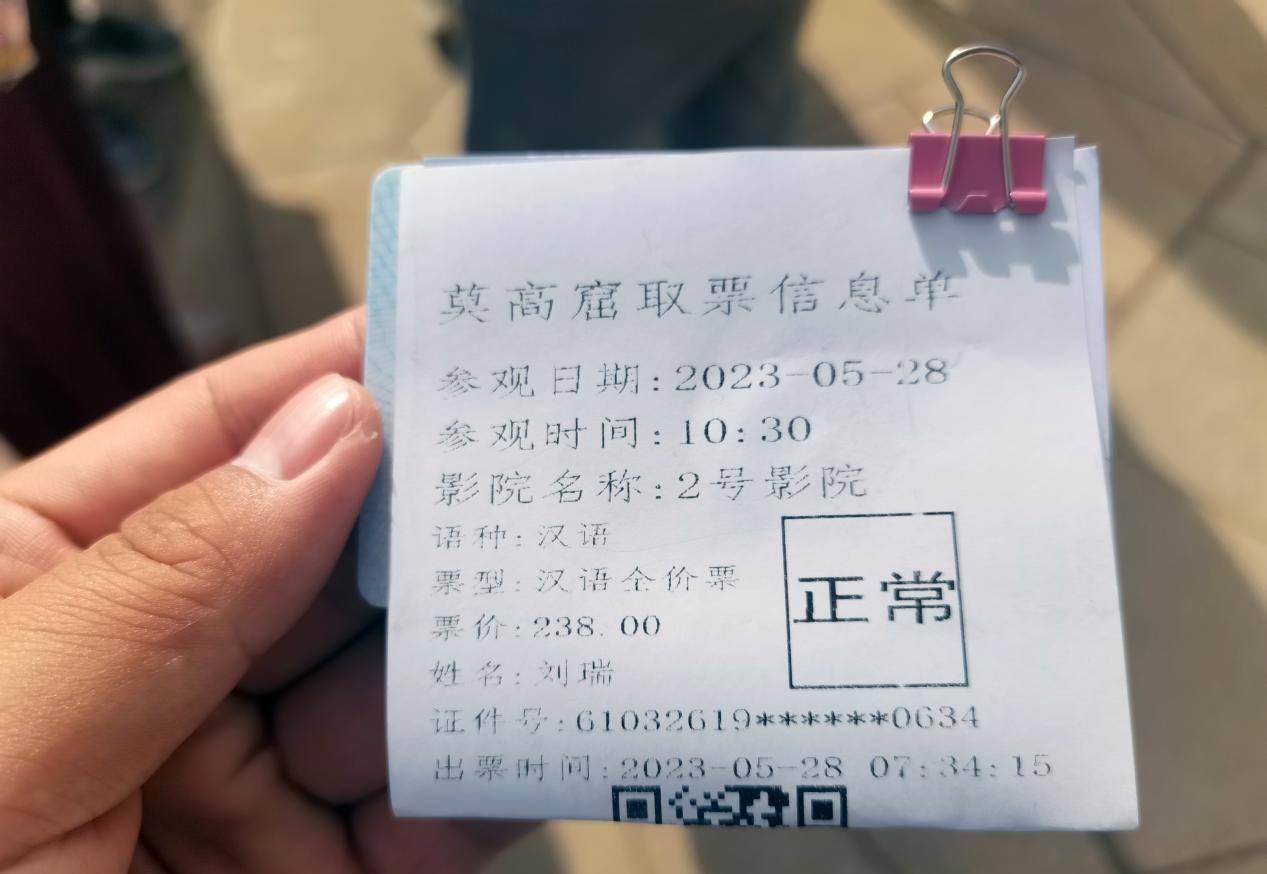 莫高窟取票信息单
参观日期:2023-05-28
参观时间:10:30
影院名称:2号影院
语种:汉语
票型:汉语全价票
票价:238.00
正常
姓名:刘瑞
证件号:61032619******0634
出票时间:2023-05-28 07:34:15